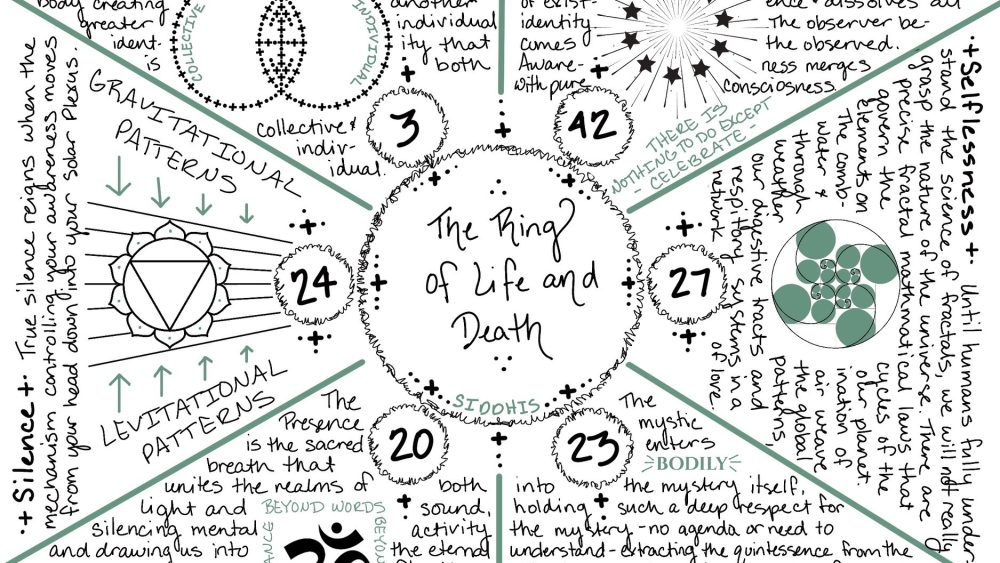 body creating
greater
ident-
is
COLLECTIVE
INDIVIDUAL
another
individual
ity that
both
collective &
indiv-
idual.
3
of exist-
identity
comes
Aware-
with pure
ence & dissolves all
The observer be-
the observed.
ness merges
consciousness.
42
THERE IS
NOTHING TO DO EXCEPT
- CELEBRATE -
·+Silence+· True silence reigns when the
mechanism controlling your awareness moves
from your head down into your solar Plexus.
GRAVITATIONAL
PATTERNS
24
LEVITATIONAL
PATTERNS
The Ring
of Life and
Death
SIDDHIS
27
·+Selflessness+· Until humans fully under-
stand the science of fractals, we will not really
grasp the nature of the universe. There are
precise fractal mathematical laws that
govern the
cycles of the
elements on
our planet.
The comb-
ination of
water &
air weave
through
the global
weather
patterns,
our digestive tracts and
respitory systems in a
network
of love.
20
The
Presence
is the sacred
breath that
unites the realms of
both
light and
sound,
silencing mental
activity
and drawing us into
the eternal
BEYOND WORDS
23
The
mystic
enters
BODILY
into the mystery itself,
holding such a deep respect for
the mystery - no agenda or need to
understand - extracting the quintessence from the